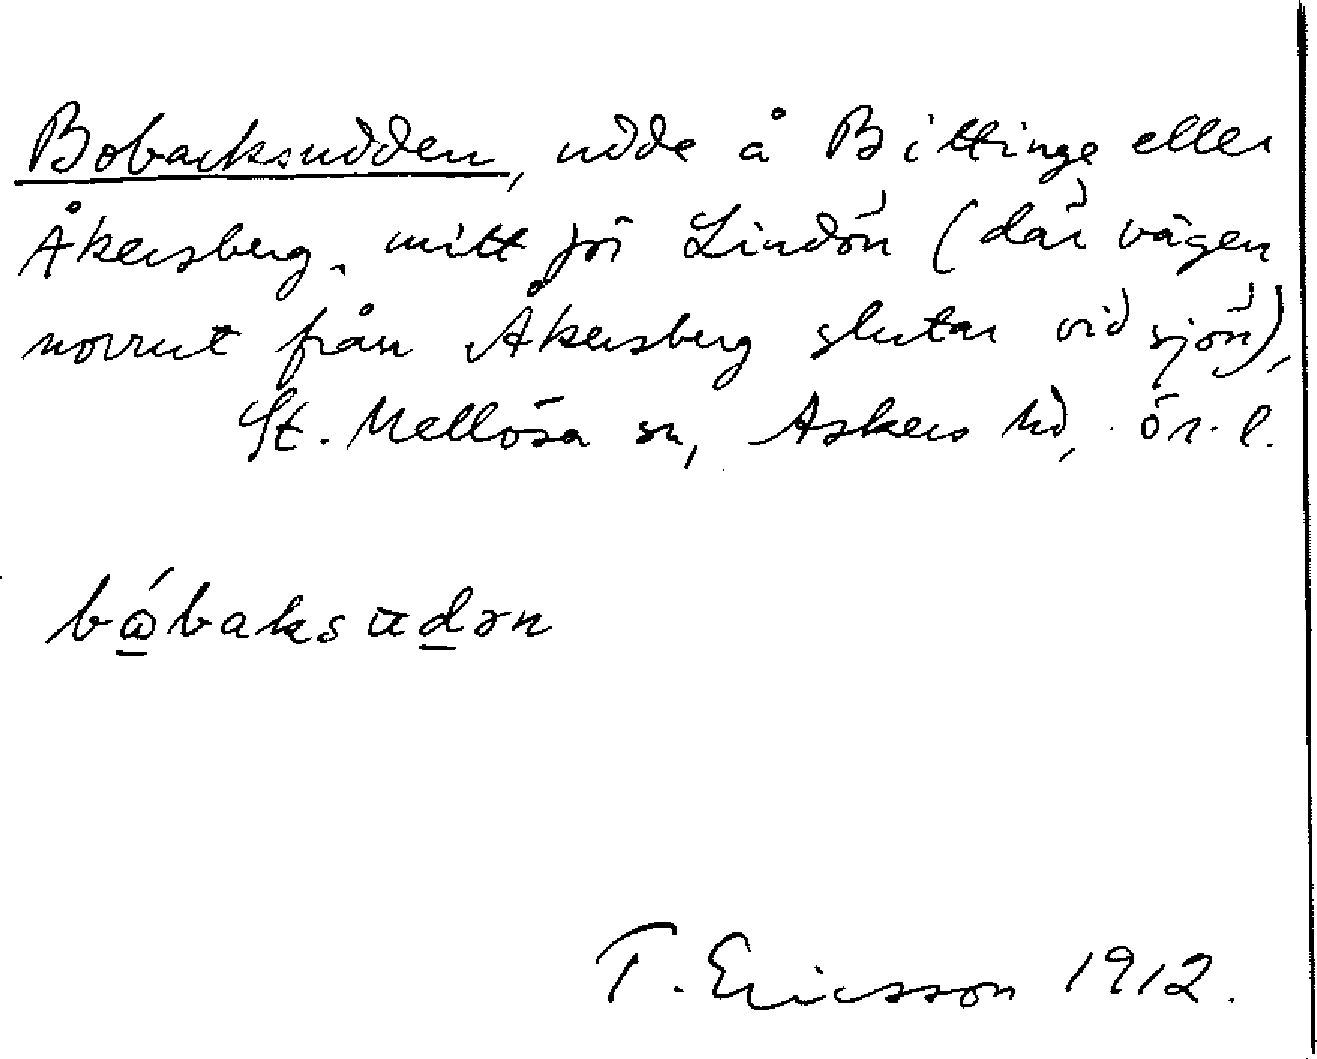 Bobacksudden, udde å Bittinge eller
Åkersberg, mitt för Lindön (där vägen
norrut från Åkersberg slutar vid sjön),
St. Mellösa sn, Askers hd, ör. l.
bⱺ́baksudən
T. Ericsson 1912.